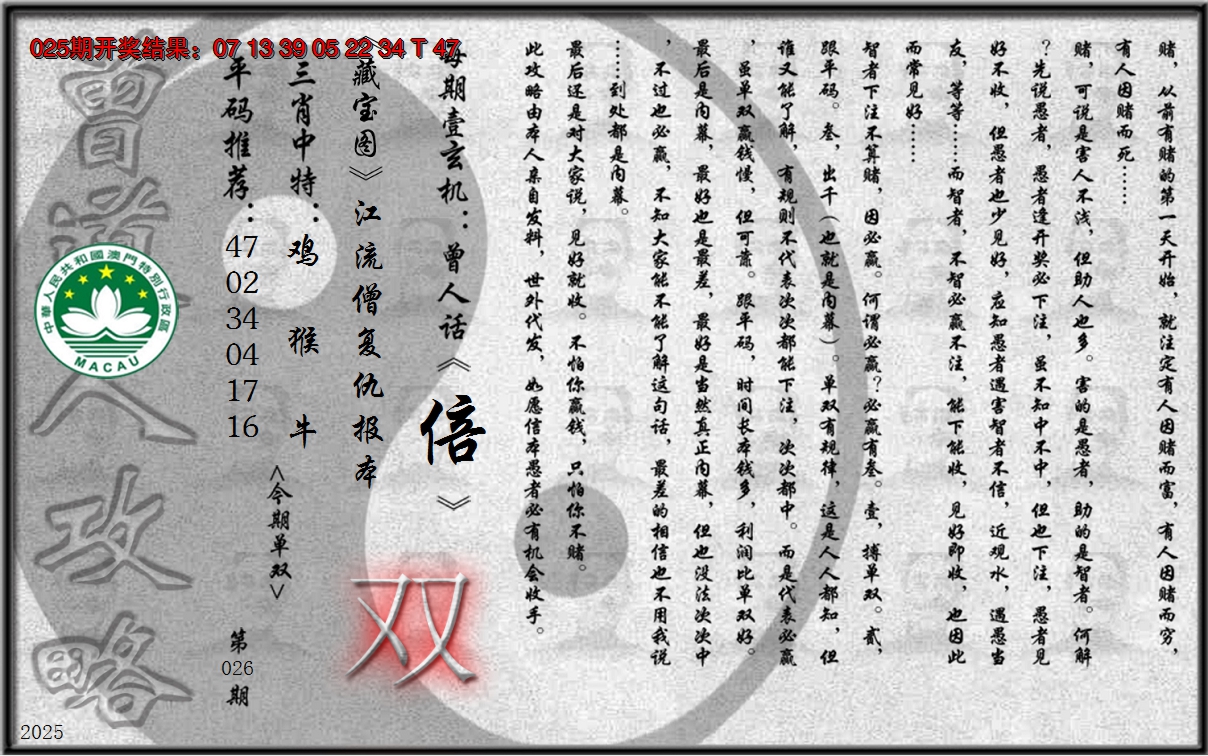 025期开奖结果：07 13 39 05 22 34 T 47
赌，从前有赌的第一天开始，就注定有人因赌而富，有人因赌而穷，
有人因赌而死……
赌，可说是害人不浅，但助人也多。害的是愚者，助的是智者。何解
？先说愚者，愚者逢开奖必下注，虽不知中不中，但也下注，愚者见
好不收，但愚者也少见好，应知愚者遇害智者不信，近观水，遇愚当
友，等等……而智者，不智必赢不注，能下能收，见好即收，也因此
而常见好……
智者下注不算赌，因必赢。何谓必赢？必赢有叁。壹，搏单双。贰，
跟平码。叁，出千（也就是内幕）。单双有规律，这是人人都知，但
谁又能了解，有规则不代表次次都能下注，次次都中。而是代表必赢
，虽单双赢钱慢，但可靠。跟平码，时间长本钱多，利润比单双好。
最后是内幕，最好也是最差，最好是当然真正内幕，但也没法次次中
，不过也必赢，不知大家能不能了解这句话，最差的相信也不用我说
……到处都是内幕。
最后还是对大家说，见好就收。不怕你赢钱，只怕你不赌。
此攻略由本人亲自发料，世外代发，如愿信本愚者必有机会收手。
每期壹玄机：曾人话《倍》
《藏宝图》江流僧复仇报本
双
三肖中特：鸡 猴 牛
<今期单双>
平码推荐：47 02 34 04 17 16
第026期
曾道人攻略
中華人民共和國澳門特別行政區
MACAU
2025